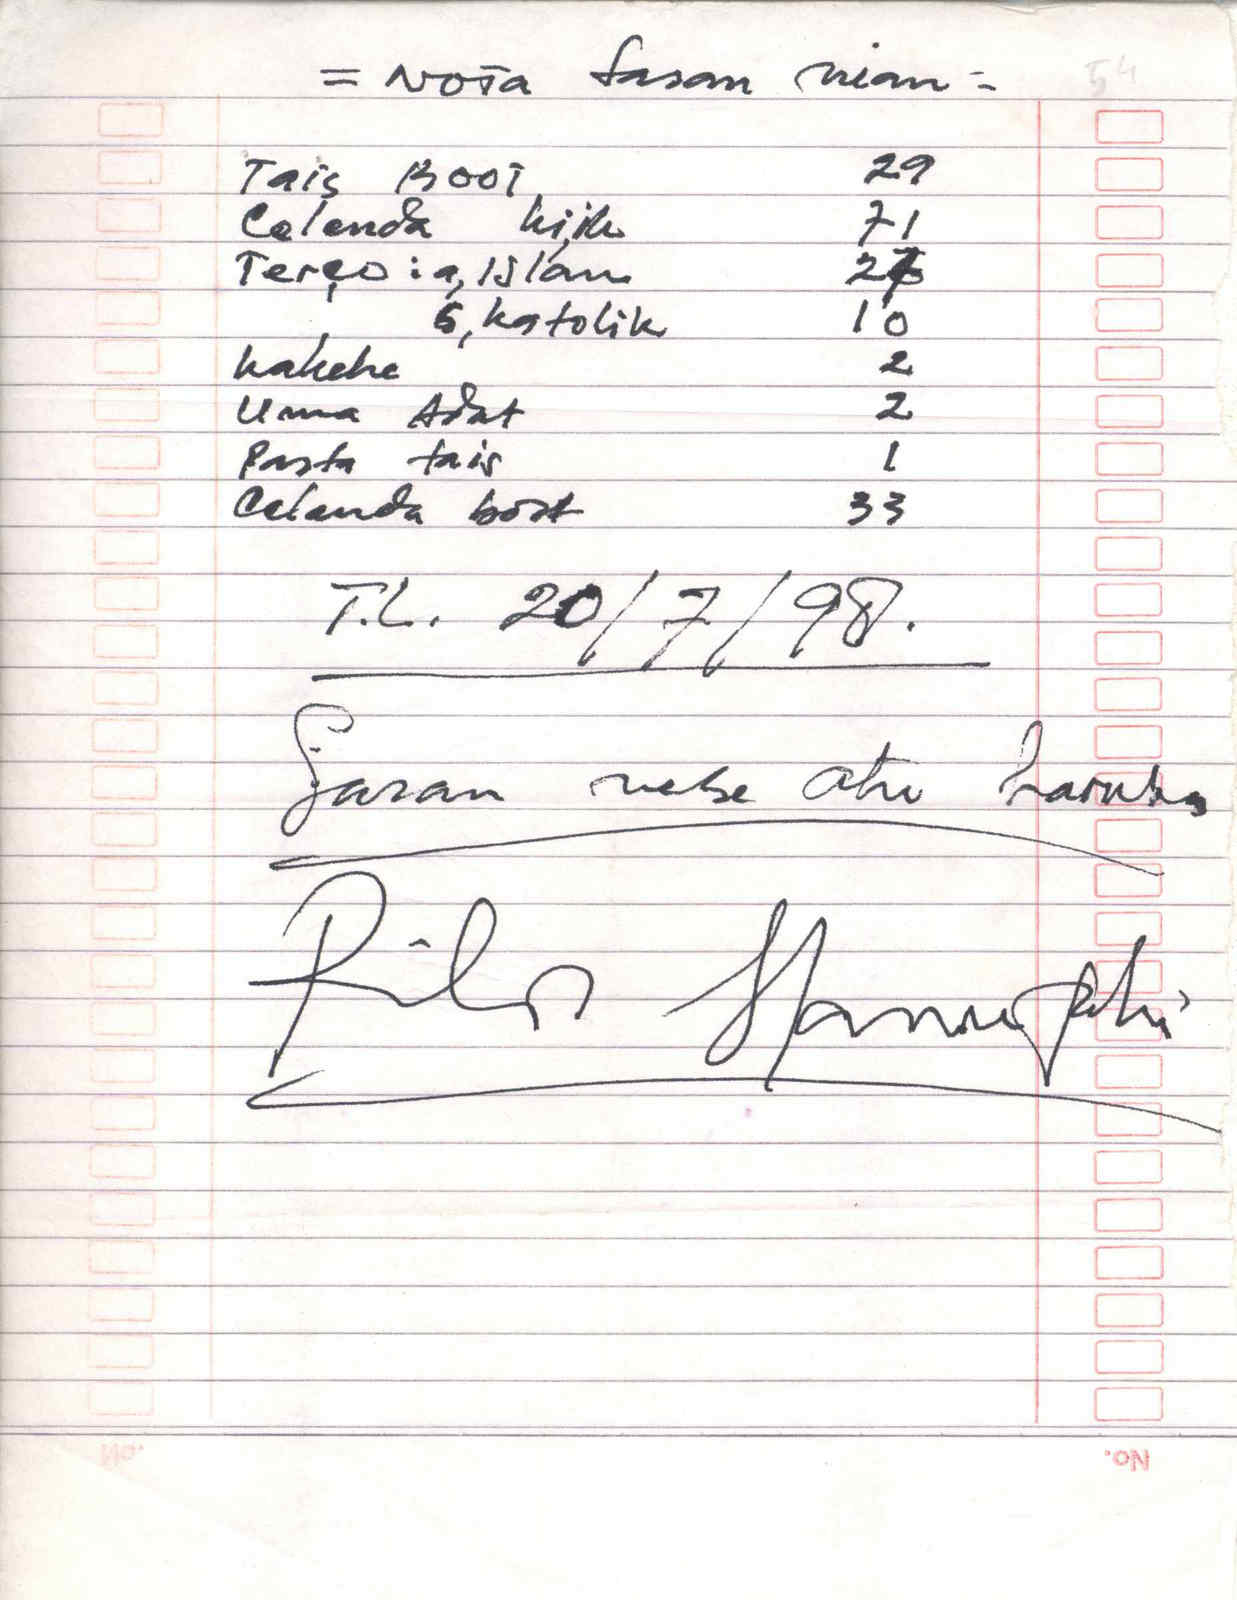 = NOTA Sasan nian =
54
Tais Boot 29
Celenda kiik 71
Terço : a, Islam
b, katolik 10
kakehe 2
Uma Adat 2
Pasta tais 1
Celenda boot 33
T.L. 20/7/98.
Sasan nebe atu haruka
No.